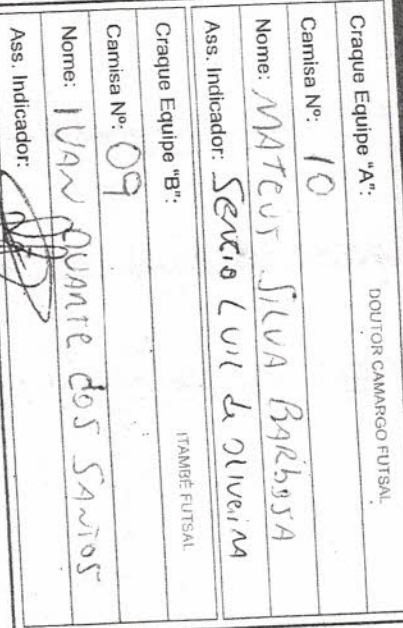 Craque Equipe "A": DOUTOR CAMARGO FUTSAL
Camisa Nº: 10
Nome: MATEUS SILVA BARBOSA
Ass. Indicador: Sergio Luiz de Oliveira
Craque Equipe "B": ITAMBÉ FUTSAL
Camisa Nº: 09
Nome: IVAN DUARTE DOS SANTOS
Ass. Indicador: